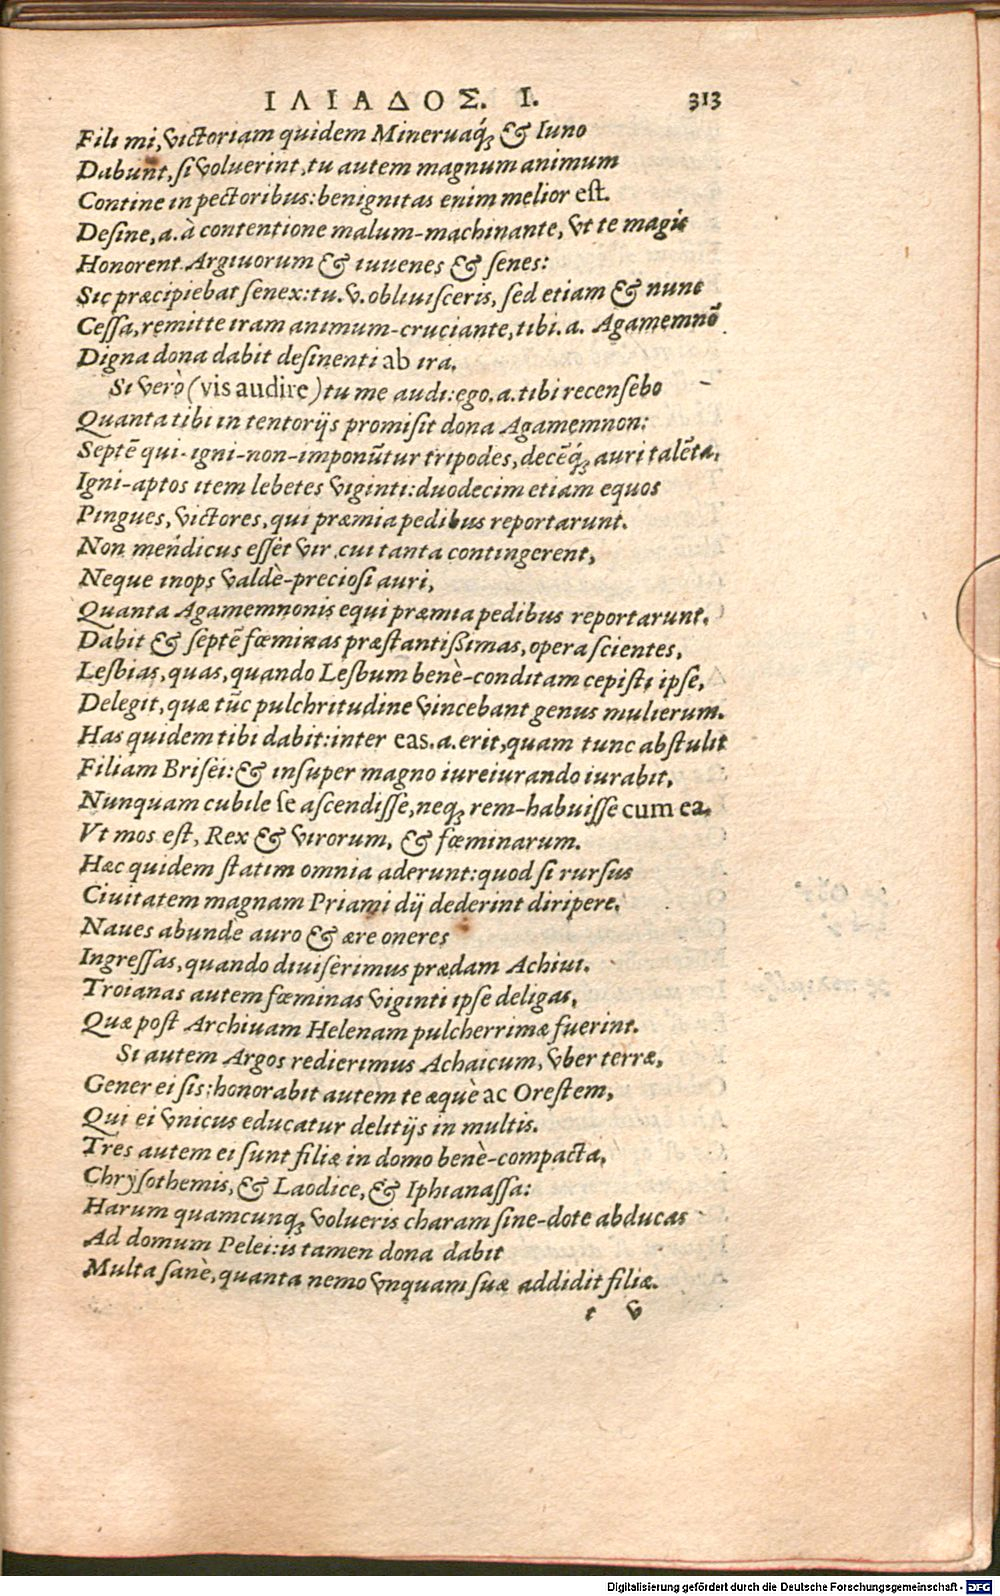 ΙΛΙΑΔΟΣ. Ι. 313
Fili mi, victoriam quidem Mineruaq́; & Iuno
Dabunt, si voluerint, tu autem magnum animum
Contine in pectoribus: benignitas enim melior est.
Desine, a. à contentione malum-machinante, vt te magis
Honorent Argiuorum & iuuenes & senes:
Sic præcipiebat senex: tu. v. obliuisceris, sed etiam & nunc
Cessa, remitte iram animum-cruciante, tibi. a. Agamemnō
Digna dona dabit desinenti ab ira.
Si verò (vis audire) tu me audi: ego. a. tibi recensebo
Quanta tibi in tentorijs promisit dona Agamemnon:
Septē qui-igni-non-imponūtur tripodes, decēq́; auri talēta,
Igni-aptos item lebetes viginti: duodecim etiam equos
Pingues, victores, qui præmia pedibus reportarunt.
Non mendicus esset vir cui tanta contingerent,
Neque inops valdè-preciosi auri,
Quanta Agamemnonis equi præmia pedibus reportarunt.
Dabit & septē fœminas præstantissimas, opera scientes,
Lesbias, quas, quando Lesbum benè-conditam cepisti ipse,
Delegit, quæ tūc pulchritudine vincebant genus mulierum.
Has quidem tibi dabit: inter eas. a. erit, quam tunc abstulit
Filiam Brisei: & insuper magno iureiurando iurabit,
Nunquam cubile se ascendisse, neq; rem-habuisse cum ea,
Vt mos est, Rex & virorum, & fœminarum.
Hæc quidem statim omnia aderunt: quod si rursus
Ciuitatem magnam Priami dij dederint diripere,
Naues abunde auro & ære oneres
Ingressas, quando diuiserimus prædam Achiui.
Troianas autem fœminas viginti ipse deligas,
Quæ post Archiuam Helenam pulcherrimæ fuerint.
Si autem Argos redierimus Achaicum, vber terræ,
Gener ei sis: honorabit autem te æquè ac Orestem,
Qui ei vnicus educatur delitijs in multis.
Tres autem ei sunt filiæ in domo benè-compacta,
Chrysothemis, & Laodice, & Iphianassa:
Harum quamcunq; volueris charam sine-dote abducas
Ad domum Pelei: is tamen dona dabit
Multa sanè, quanta nemo vnquam suæ addidit filiæ.
t v
Digitalisierung gefördert durch die Deutsche Forschungsgemeinschaft - DFG